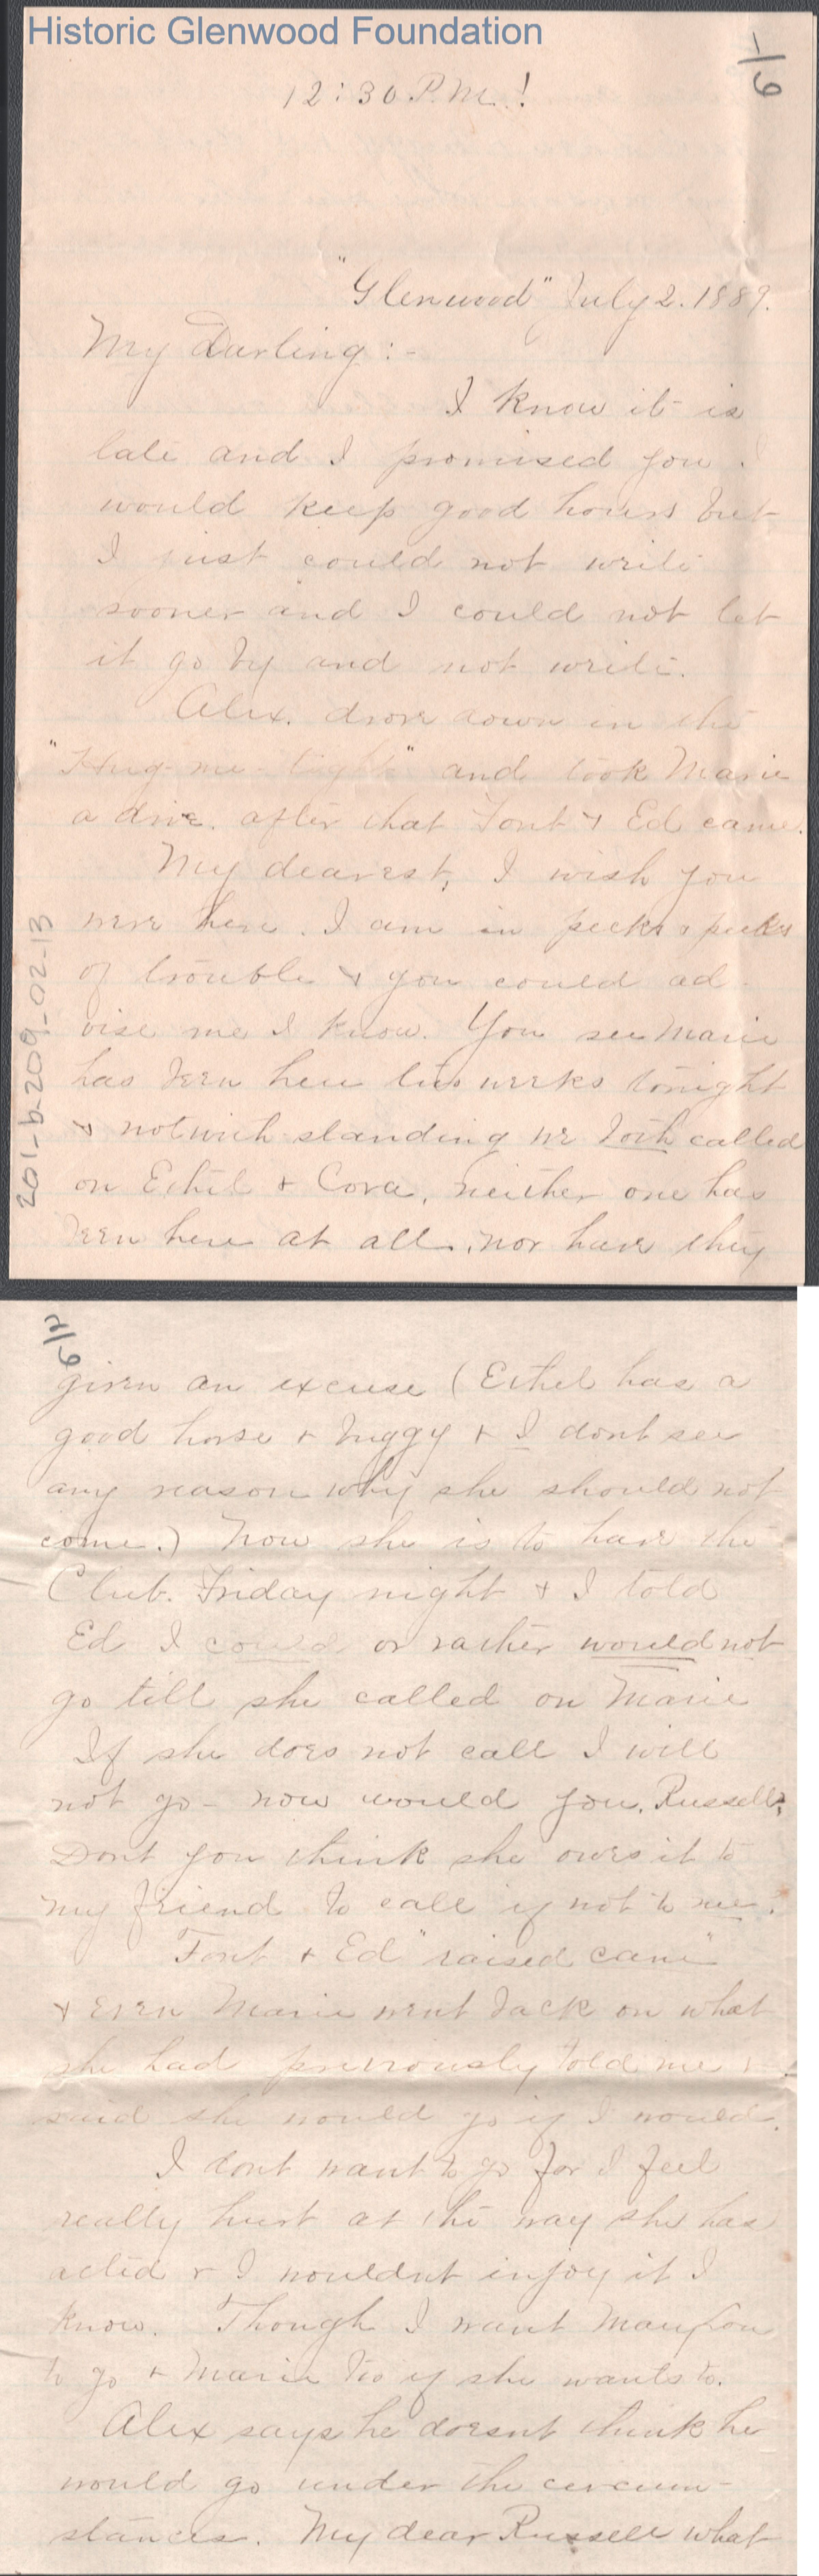 Historic Glenwood Foundation
1/6
12:30 P.M.!
"Glenwood" July 2. 1889.
My Darling:-
I know it is
late and I promised you I
would keep good hours but
I just could not write
sooner and I could not let
it go by and not write.
Alex. drove down in the
"Hug-me-tight" and took Marie
a drive. after that Font & Ed came.
My dearest, I wish you
were here. I am in pecks & pecks
of trouble & you could ad-
vise me I know. You see Marie
has been here two weeks tonight
& notwith-standing we both called
on Ethel & Cora, neither one has
been here at all, nor have they
201-b-209-02-13
2/6
given an excuse (Ethel has a
good horse & buggy & I dont see
any reason why she should not
come.) Now she is to have the
Club. Friday night & I told
Ed I could or rather would not
go till she called on Marie
If she does not call I will
not go - now would you, Russell?
Dont you think she owes it to
my friend to call if not to me.
Font & Ed "raised cane"
& even Marie went back on what
she had previously told me &
said she would go if I would.
I dont want to go for I feel
really hurt at the way she has
acted & I wouldnt enjoy it I
know. Though I want
to go & Marie too if she wants to.
Alex says he doesnt think he
would go under the circum-
stances. My dear Russell what